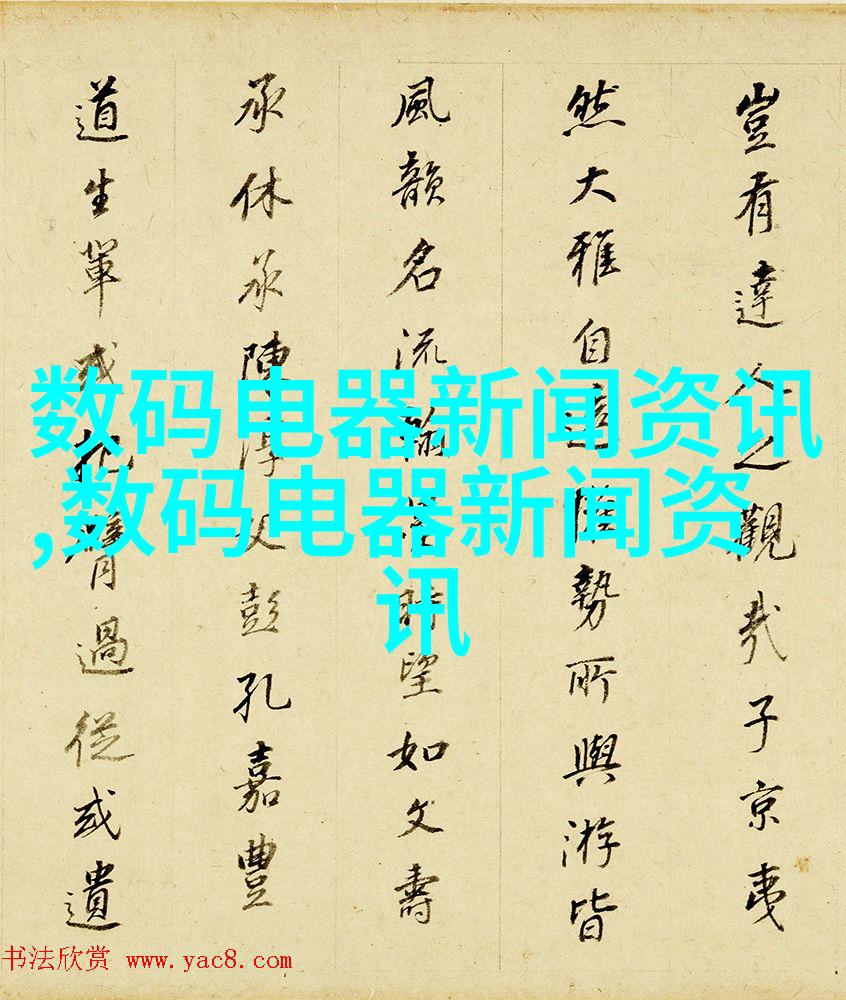 豈有達人之觀哉子京夷
然大雅自遠權勢所與游皆
風韻名流翰墨時望如文壽
承休承陳淳父彭孔嘉豐
道生輩或把臂過從或遺
数码电器新闻资讯
,数码电器新闻资
讯
书法欣赏 www.yac8.com